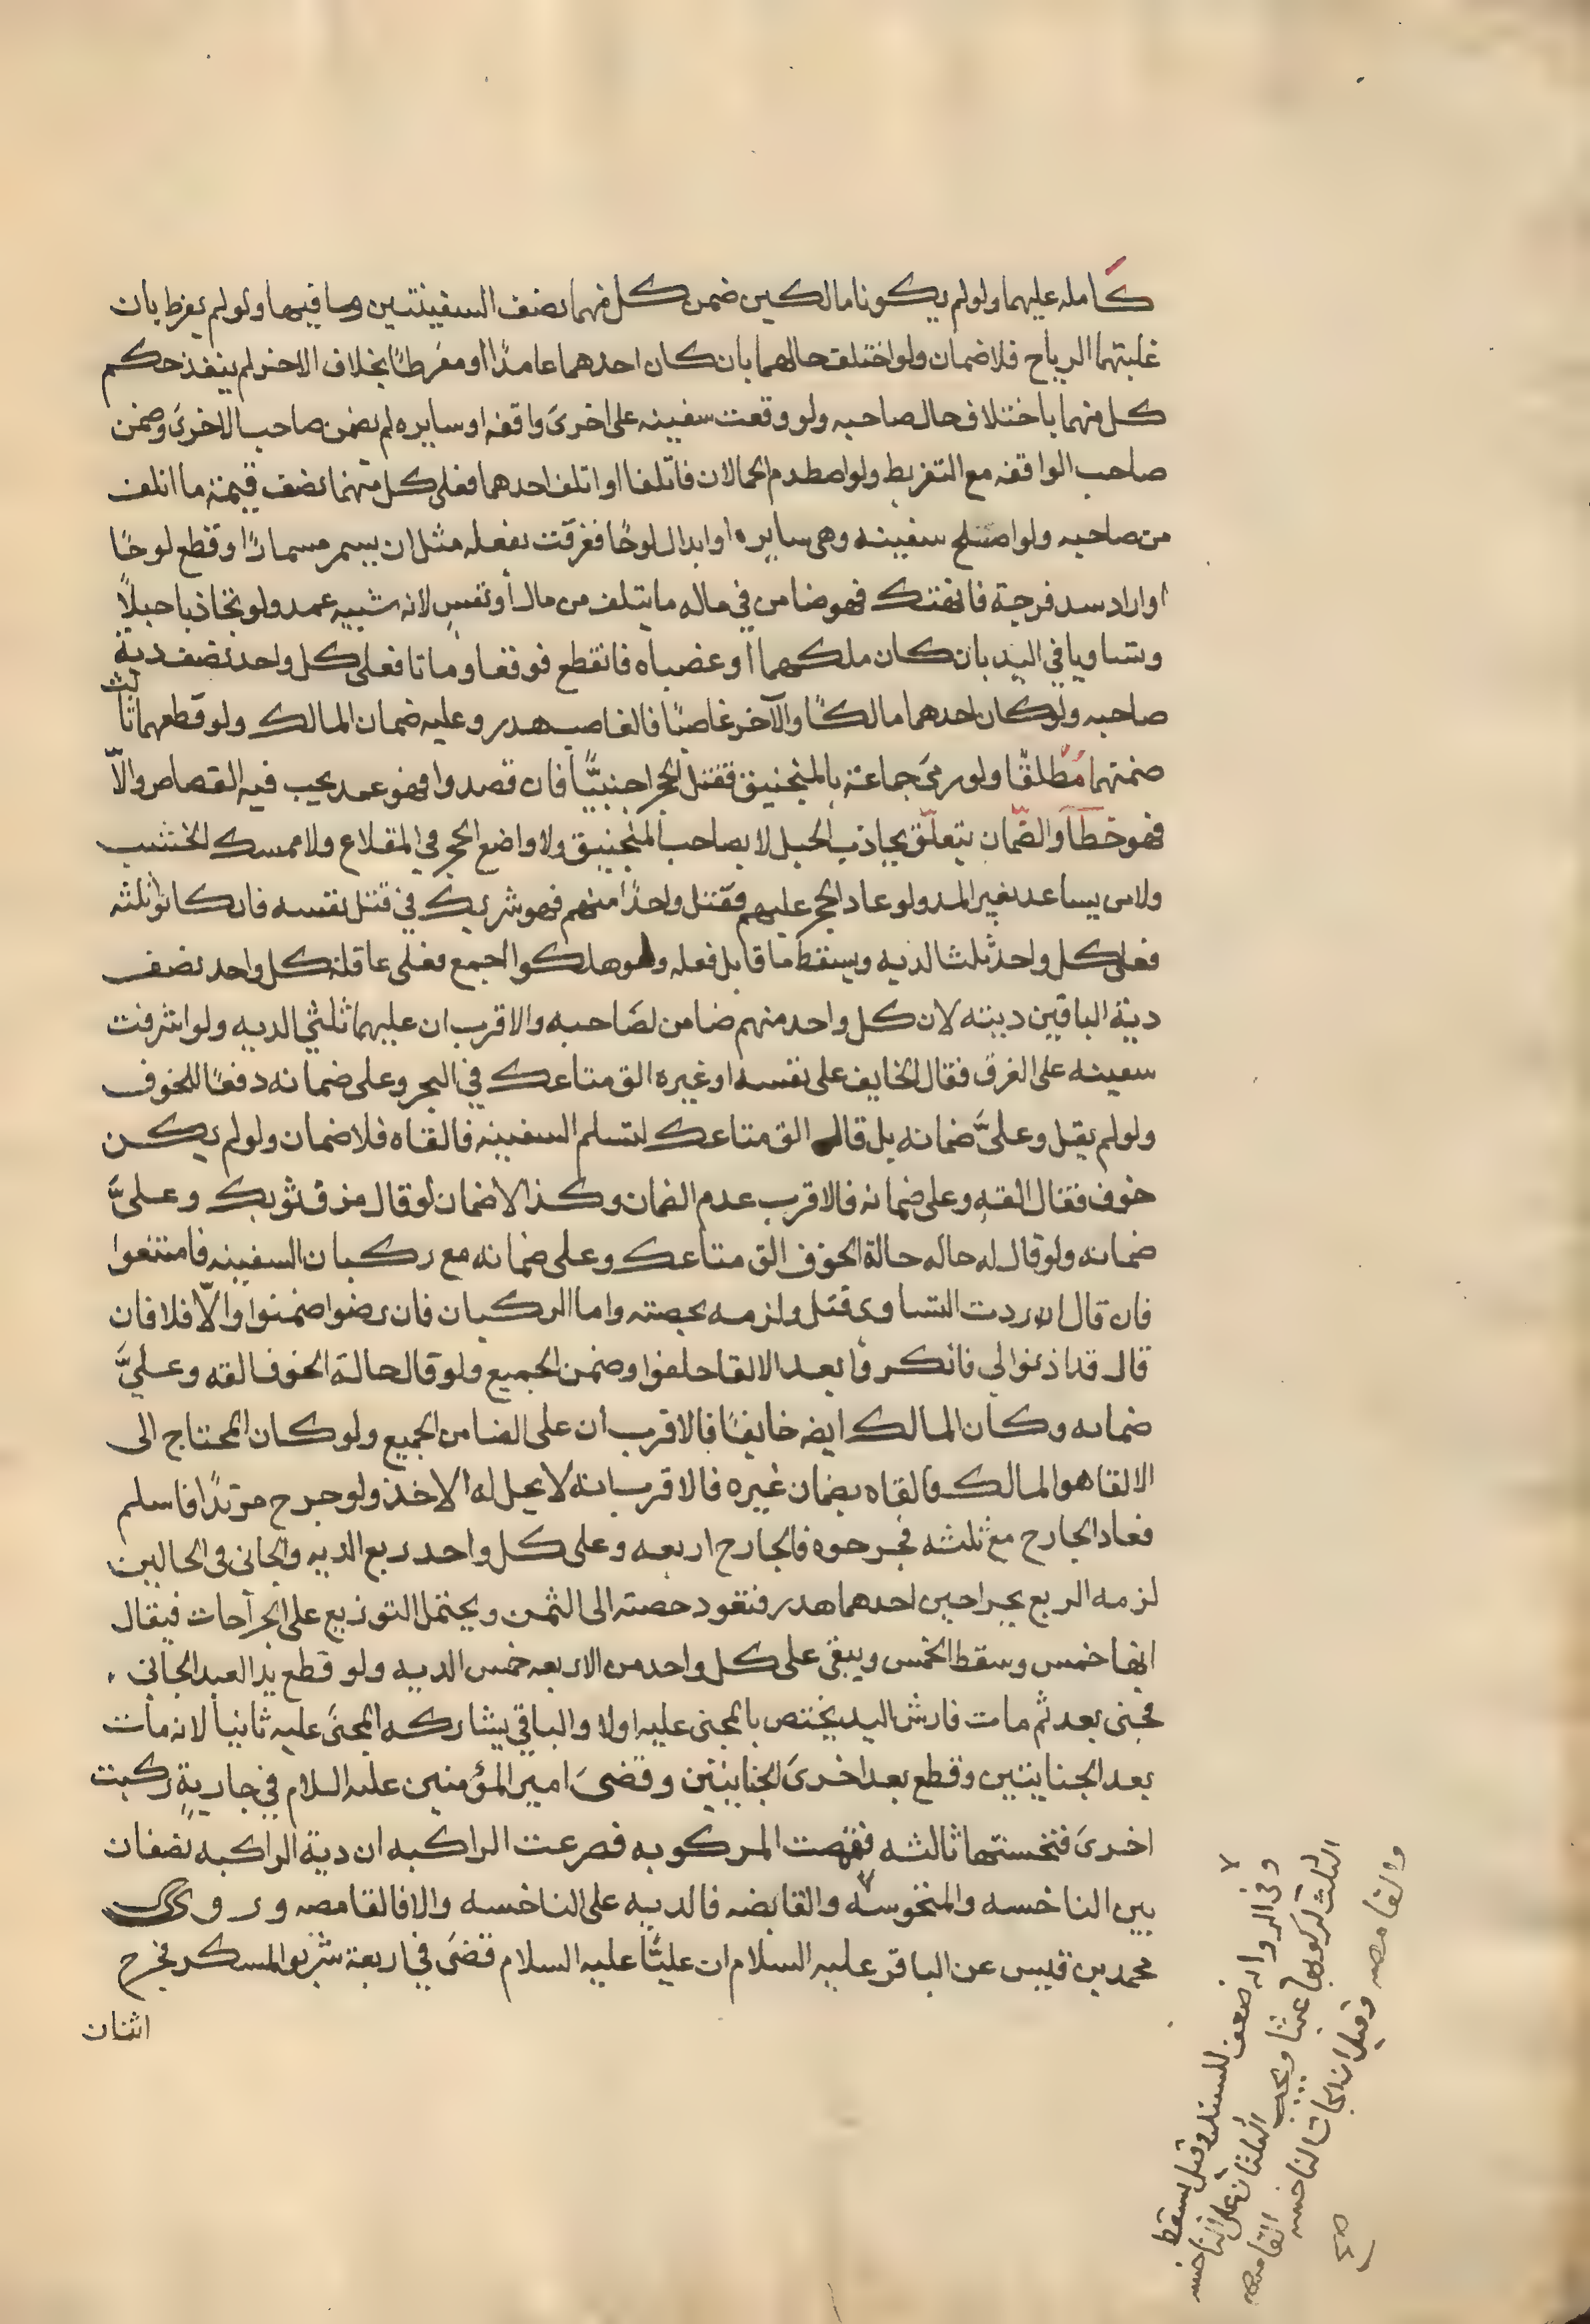 كاملة عليهما ولو لم يكونا مالكين ضمن كل منهما نصف السفينتين وما فيهما ولو لم يفرط بان
غلبتهما الرياح فلا ضمان ولو اختلف حالهما بان كان احدهما عامدًا او مفرطًا بخلاف الاخر لم ينفذ حكم
كل منهما باختلاف حال صاحبه ولو وقعت سفينه على اخرىَ واقفه او سايره لم يضمن صاحب الاخرىَ وضمن
صاحب الواقفه مع التفريط ولو اصطدم الحمالان فاتلفا او اتلف احدهما فعلى كل منهما نصف قيمة ما اتلف
من صاحبه ولو اصلح سفينه وهى سايره او ابدال لوحًا فغرقت بفعله مثل ان يسمر مسمارًا او قطع لوحًا
او اراد سد فرجة فانهتك فهو ضامن في ماله ما يتلف من مال أو نفسٍ لانه شبيه عمد ولو تجاذبا حبلاً
وتساويا في اليد بان كان ملكهما أو غصباه فانقطع فوقعا وماتا فعلى كل واحد نصف دية
صاحبه ولو كان احدهما مالكًا والآخر غاصبًا فالغاصب هدر وعليه ضمان المالك ولو قطعهما ثالث
ضمنهما مُطلقًا ولو رمىَ جماعة بالمنجنيق فقتل الحجر اجنبيًّا فان قصدوا فهو عمد يجب فيه القصاص والاّ
فهو خطآ والضّمان يتعلّق بجاذب الحبل لا بصاحب المنجنيق ولا واضع الحجر في المقلاع ولا ممسك الخشب
ولا من يساعد بغير المد ولو عاد الحجر عليهم فقتل واحدًا منهم فهو شريك في قتل نفسه فان كانوا ثلثه
فعلى كل واحد ثلث الديه ويسقط ما قابل فعله ولو هلكوا اجمع فعلى عاقلة كل واحد نصف
دية الباقين ديته لان كل واحد منهم ضامن لصاحبه والاقرب ان عليهما ثلثي الديه ولو اشرفت
سفينه على الغرق فقال الخايف على نفسه او غيره الق متاعك في البحر وعلى ضمانه دفعًا للخوف
ولو لم يقل وعلىَّ ضمانه بل قال الق متاعك لتسلم السفينه فالقاه فلا ضمان ولو لم يكن
خوف فقال القه وعلى ضمانه فالاقرب عدم الضمان وكذا لا ضمان لو قال مزق ثوبك وعلىَّ
ضمانه ولو قال له حاله حالة الخوف الق متاعك وعلى ضمانه مع ركبان السفينه فامتنعوا
فان قال اردت التساوى قبل ولزمه بحصته واما الركبان فان رضوا ضمنوا والاّ فلا فان
قال قد اذنوا لي فانكروا بعد الالقا حلفوا وضمن الجميع ولو قال حالة الخوف القه وعليَّ
ضمانه وكان المالك ايضه خايفًا فالاقرب ان على الضامن الجميع ولو كان المحتاج الى
الالقا هو المالك فالقاه بضمان غيره فالاقرب انه لا يحل له الاخذ ولو جرح مرتدًا فاسلم
فعاد الجارح مع ثلثه فجرحوه فالجارح اربعه وعلى كل واحد ربع الديه والجانى فى الحالين
لزمه الربع بجراحين احدهما هدر فتعود حصته الى الثمن ويحتمل التوزيع على الجرآحات فيقال
انها خمس وسقط الخمس ويبقى على كل واحد من الاربعه خمس الديه ولو قطع يد العبد الجاني
فجنى بعد ثم مات فارش اليد يختص بالمجنى عليه اولا والباقي يشاركه المجنى عليه ثانيا لانه مات
بعد الجنايتين وقطع بعد اخرىَ الجنايتين وقضىَ امير المؤمنين عليه السلام في جاريةٍ ركبت
اخرىَ فنخستها ثالثه فقمصت المركوبه فصرعت الراكبه ان دية الراكبه نصفان
بين الناخسه والمنخوسه والقابضه فالديه على الناخسه والا فالقامصه وروى
محمد بن قيس عن الباقر عليه السلام ان عليًّا عليه السلام قضىَ في اربعة شربوا المسكر فجرح
اثنان
وفى الروايه ضعف للسند وقيل يسقط
الثلث لركوبها عبثا ويجب الثلثان على الناخسه
والقامصه وقيل ان الجات الناخسه القامصه
صح